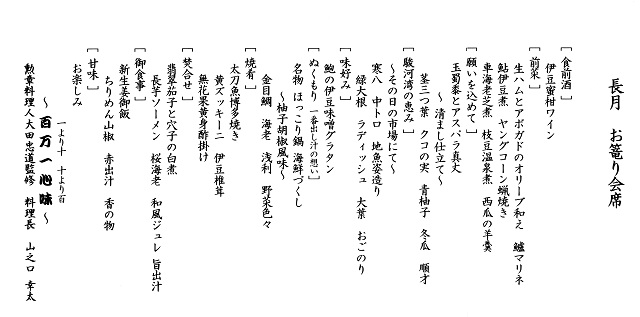 長月　お篭り会席
[ 食前酒 ]
伊豆蜜柑ワイン
[ 前菜 ]
生ハムとアボガドのオリーブ和え　鱸マリネ
鮎伊豆煮　ヤングコーン蝋焼き
車海老芝煮　枝豆温泉煮　西瓜の羊羹
[ 願いを込めて ]
玉蜀黍とアスパラ真丈
～ 清まし仕立て ～
茎三つ葉　クコの実　青柚子　冬瓜　順才
[ 駿河湾の恵み ]
～その日の市場にて～
寒八　中トロ　地魚姿造り
緑大根　ラディッシュ　大葉　おごのり
[ 味好み ]
鮑の伊豆味噌グラタン
[ ぬくもり 一番出し汁の想い ]
名物　ほっこり鍋 海鮮づくし
～柚子胡椒風味～
金目鯛　海老　浅利　野菜色々
[ 焼肴 ]
太刀魚博多焼き
黄ズッキーニ　伊豆椎茸
無花果黄身酢掛け
[ 焚合せ ]
翡翠茄子と穴子の白煮
長芋ソーメン　桜海老　和風ジュレ 旨出汁
[ 御食事 ]
新生姜御飯
ちりめん山椒　赤出汁　香の物
[ 甘味 ]
お楽しみ
一より十　十より百
～ 百万一心味 ～
勲章料理人大田忠道監修　料理長　山之口 幸太